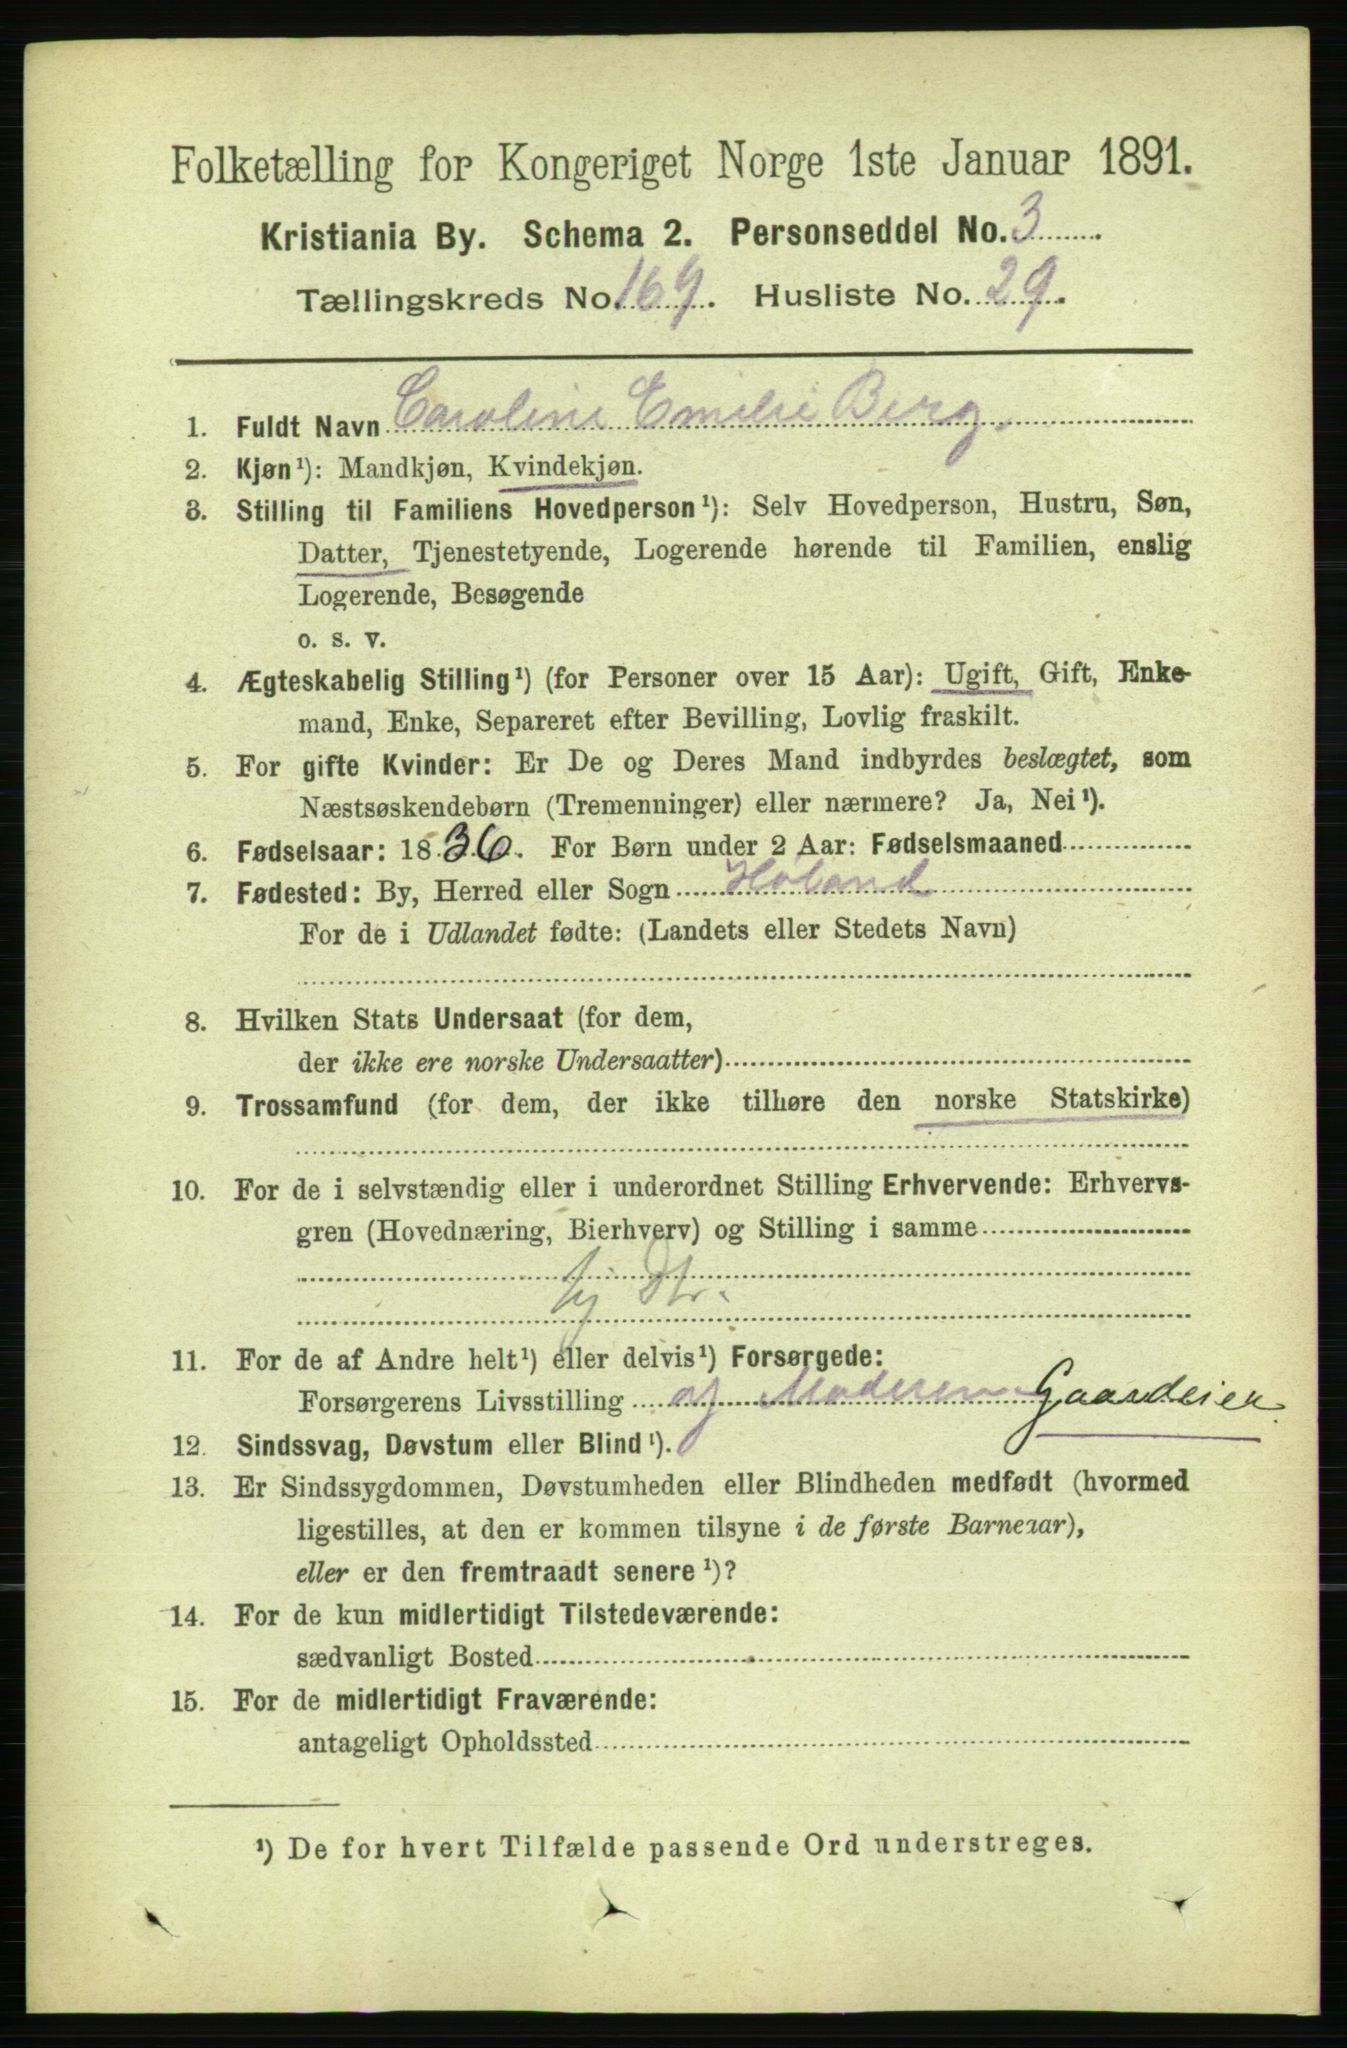 Folketælling for Kongeriget Norge 1ste Januar 1891.
Kristiania By. Schema 2. Personseddel No. 3
Tællingskreds No. 169. Husliste No. 29.
1. Fuldt Navn Caroline Emilie Berg.
2. Kjøn¹): Mandkjøn, Kvindekjøn.
3. Stilling til Familiens Hovedperson¹): Selv Hovedperson, Hustru, Søn,
Datter, Tjenestetyende, Logerende hørende til Familien, enslig
Logerende, Besøgende
o. s. v.
4. Ægteskabelig Stilling¹) (for Personer over 15 Aar): Ugift, Gift, Enke-
mand, Enke, Separeret efter Bevilling, Lovlig fraskilt.
5. For gifte Kvinder: Er De og Deres Mand indbyrdes beslægtet, som
Næstsøskendebørn (Tremenninger) eller nærmere? Ja, Nei¹).
6. Fødselsaar: 1836. For Børn under 2 Aar: Fødselsmaaned
7. Fødested: By, Herred eller Sogn Høland
For de i Udlandet fødte: (Landets eller Stedets Navn)
8. Hvilken Stats Undersaat (for dem,
der ikke ere norske Undersaatter)
9. Trossamfund (for dem, der ikke tilhøre den norske Statskirke)
10. For de i selvstændig eller i underordnet Stilling Erhvervende: Erhvervs-
gren (Hovednæring, Bierhverv) og Stilling i samme
Dtr.
11. For de af Andre helt¹) eller delvis¹) Forsørgede:
Forsørgerens Livsstilling af Moderen Gaardeier
12. Sindssvag, Døvstum eller Blind¹).
13. Er Sindssygdommen, Døvstumheden eller Blindheden medfødt (hvormed
ligestilles, at den er kommen tilsyne i de første Barneaar),
eller er den fremtraadt senere¹)?
14. For de kun midlertidigt Tilstedeværende:
sædvanligt Bosted
15. For de midlertidigt Fraværende:
antageligt Opholdssted
¹) De for hvert Tilfælde passende Ord understreges.